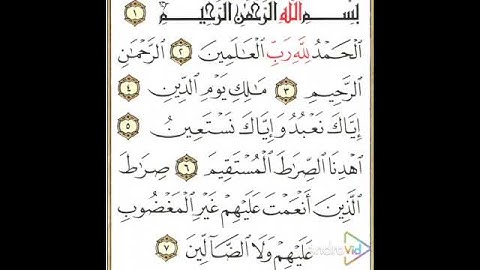 بِسْمِ اللَّهِ الرَّحْمَٰنِ الرَّحِيمِ ١
الْحَمْدُ لِلَّهِ رَبِّ الْعَالَمِينَ ٢ الرَّحْمَٰنِ
الرَّحِيمِ ٣ مَالِكِ يَوْمِ الدِّينِ ٤
إِيَّاكَ نَعْبُدُ وَإِيَّاكَ نَسْتَعِينُ ٥
اهْدِنَا الصِّرَاطَ الْمُسْتَقِيمَ ٦ صِرَاطَ
الَّذِينَ أَنْعَمْتَ عَلَيْهِمْ غَيْرِ الْمَغْضُوبِ
عَلَيْهِمْ وَلَا الضَّالِّينَ ٧
AndroVid